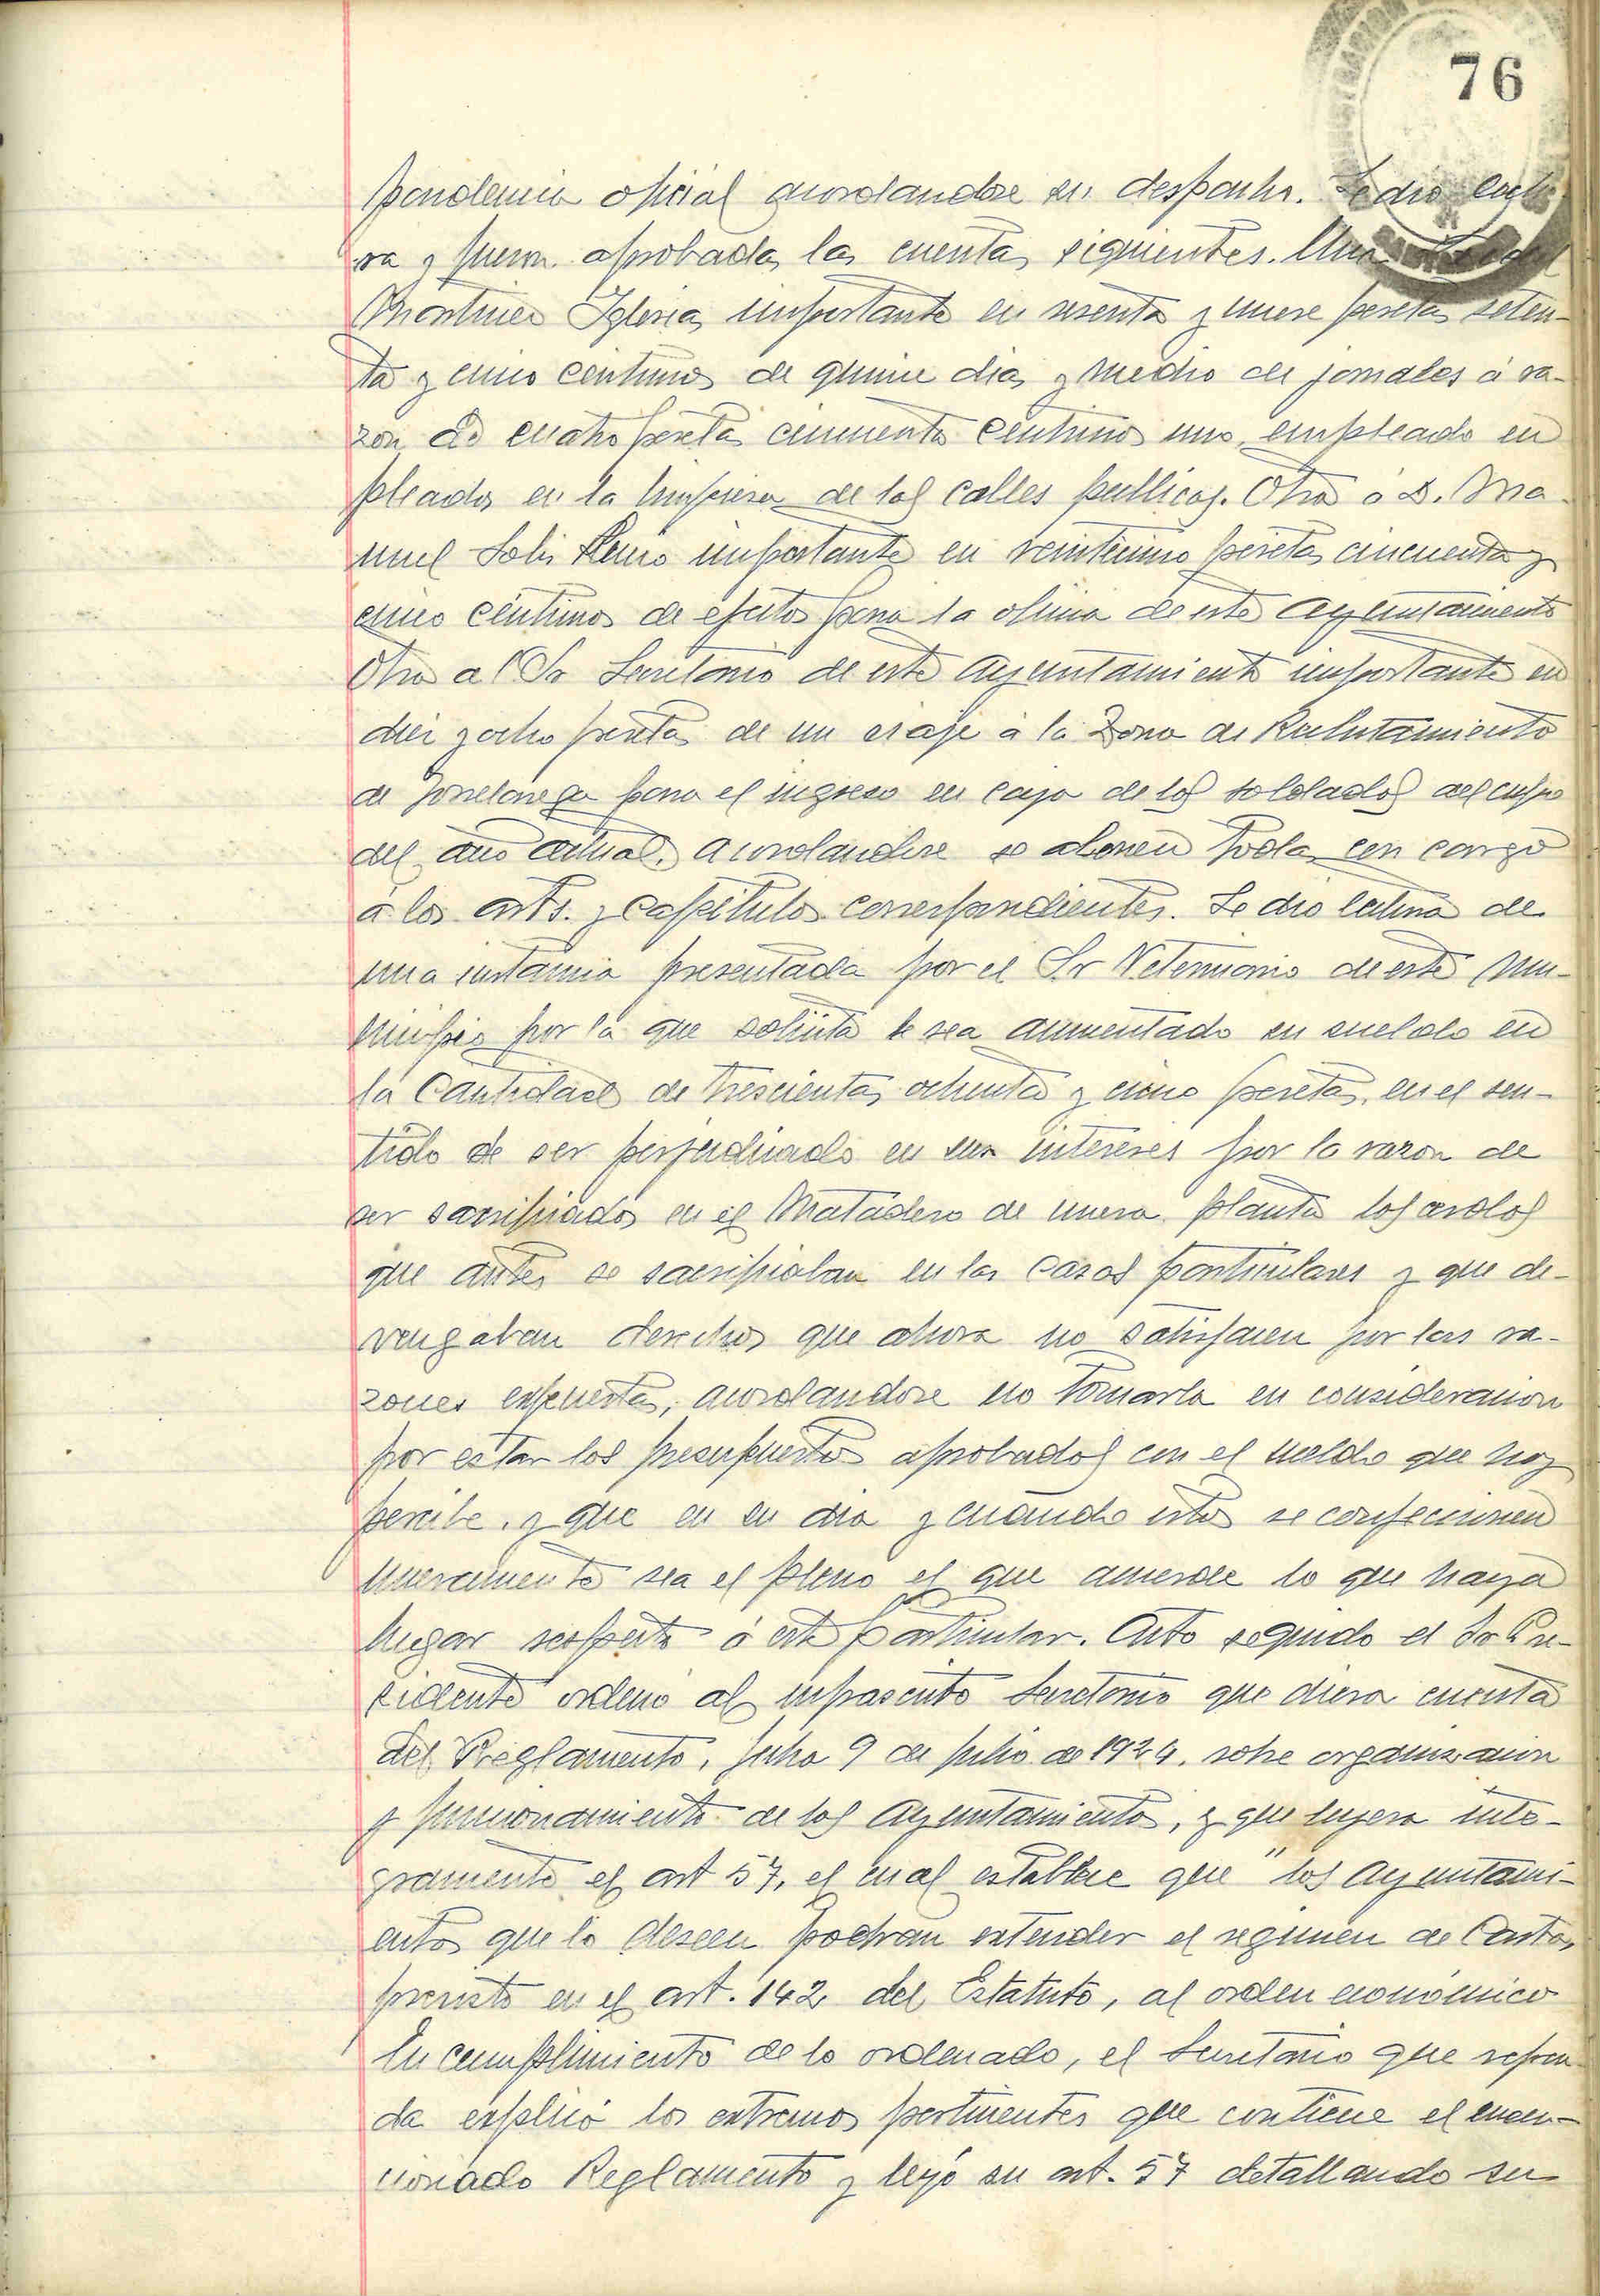 76
pondencia oficial acordandose su despacho. Se dio lectu
ra y fueron aprobadas las cuentas siguientes. Una
Martinez Iglesias importante en sesenta y nueve pesetas seten-
ta y cinco centimos de quince dias y medio de jornales á ra-
zon de cuatro pesetas cincuenta centimos uno, empleado en
pleados en la limpieza de las calles publicas. Otra a D. Ma-
nuel Solis importante en veinticinco pesetas cincuenta y
cinco centimos de efectos para la oficina de este Ayuntamiento
Otra al Sr Secretario de este Ayuntamiento importante en
diez y ocho pesetas de un viaje á la Zona de Reclutamiento
de Torrelavega para el ingreso en caja de los soldados del cupo
del año actual, acordandose se abonen todas con cargo
á los arts. y capitulos correspondientes. Se dio lectura de
una instancia presentada por el Sr Veterinario de este Mu-
nicipio por la que solicita le sea aumentado su sueldo en
la cantidad de trescientas ochenta y cinco pesetas, en el sen-
tido de ser perjudicado en sus intereses por la razon de
ser sacrificados en el Matadero de nueva planta los cerdos
que antes se sacrificaban en las casas particulares y que de-
vengaban derechos que ahora no satisfacen por las ra-
zones expuestas, acordandose no tomarla en consideracion
por estar los presupuestos aprobados con el sueldo que hoy
percibe, y que en su dia y cuando estos se confeccionen
nuevamente sea el pleno el que acuerde lo que haya
lugar respecto á este particular. Acto seguido el Sr Pre-
sidente ordenó al infrascrito Secretario que diera cuenta
del Reglamento, fecha 9 de Julio de 1924, sobre organizacion
y funcionamiento de los Ayuntamientos, y que leyera inte-
gramente el art 57, el cual establece que "los Ayuntami-
entos que lo deseen podran extender el regimen de Carta,
previsto en el art. 142 del Estatuto, al orden económico
En cumplimiento de lo ordenado, el Secretario que refren-
da explicó los extremos pertinentes que contiene el men-
cionado Reglamento y leyó su art. 57 detallando su